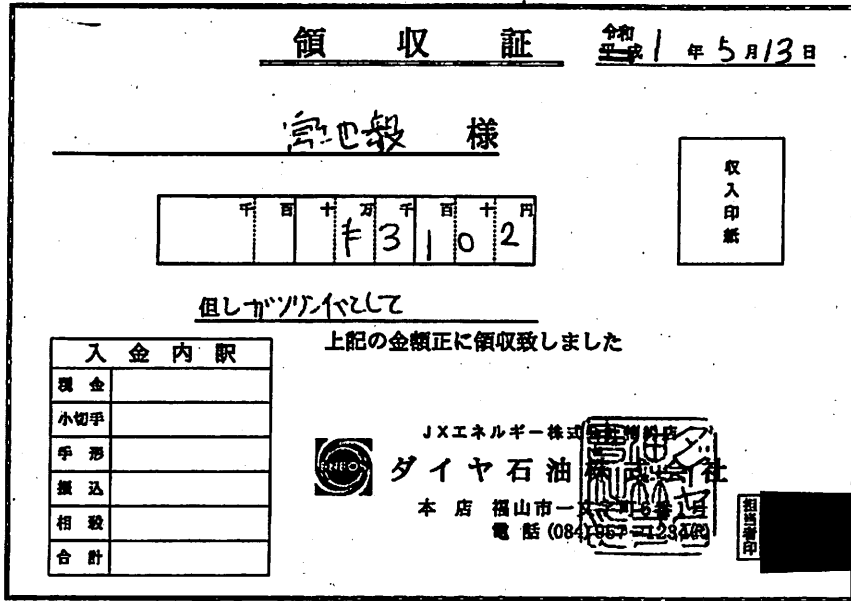 領収証
令和
平成 1 年 5 月 13 日
宮地毅 様
収入印紙
千 百 十 万 千 百 十 円
¥ 3 1 0 2
但し ガソリン代として
上記の金額正に領収致しました
入金内訳
現金
小切手
手形
振込
相殺
合計
ENEOS
JXエネルギー株式会社特約店
ダイヤ石油株式会社
本店 福山市一文字町6番1号
電話 (084) 957-1234(代)
担当者印